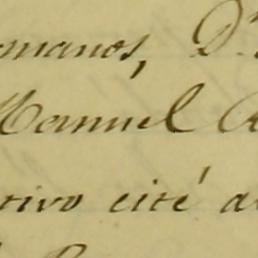 omanos, D.
Manuel
tivo cité a